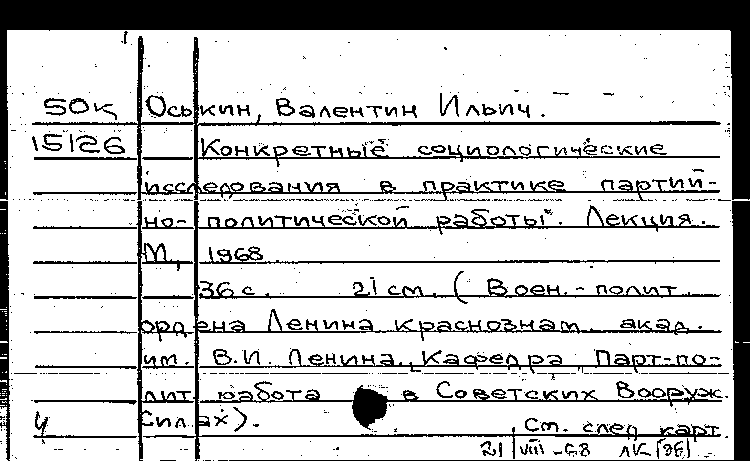 50к Оськин, Валентин Ильич.
15126 Конкретные социологические
исследования в практике партий-
но-политической работы. Лекция.
М., 1968
36 с. 21 см. (Воен.-полит.
ордена Ленина краснознам. акад.
им. В.И. Ленина. Кафедра Парт-по-
лит. работа в Советских Вооруж.
Силах).
Ч См. след карт.
21/VIII-68